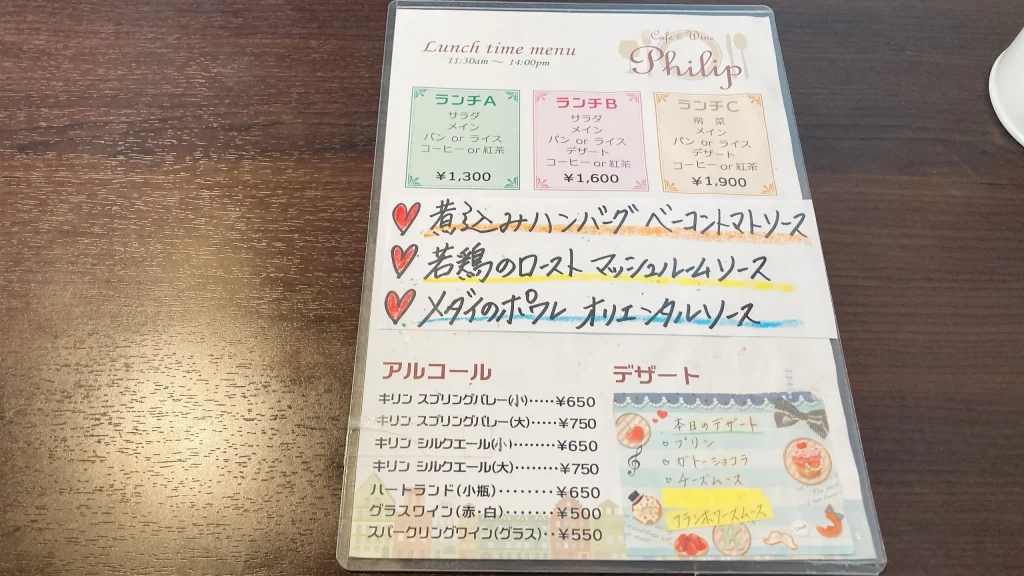 Lunch time menu
11:30am ～ 14:00pm
Cafe & Wine
Philip
ランチA
サラダ
メイン
パン or ライス
コーヒー or 紅茶
¥1,300
ランチB
サラダ
メイン
パン or ライス
デザート
コーヒー or 紅茶
¥1,600
ランチC
前 菜
メイン
パン or ライス
デザート
コーヒー or 紅茶
¥1,900
煮込みハンバーグ ベーコントマトソース
若鶏のロースト マッシュルームソース
メダイのポワレ オリエンタルソース
アルコール
キリン スプリングバレー(小)·····¥650
キリン スプリングバレー(大)·····¥750
キリン シルクエール(小)········¥650
キリン シルクエール(大)········¥750
ハートランド(小瓶)········¥650
グラスワイン(赤・白)········¥500
スパークリングワイン(グラス)··¥550
デザート
本日のデザート
○ プリン
○ ガトーショコラ
○ チーズムース
フランボワーズムース